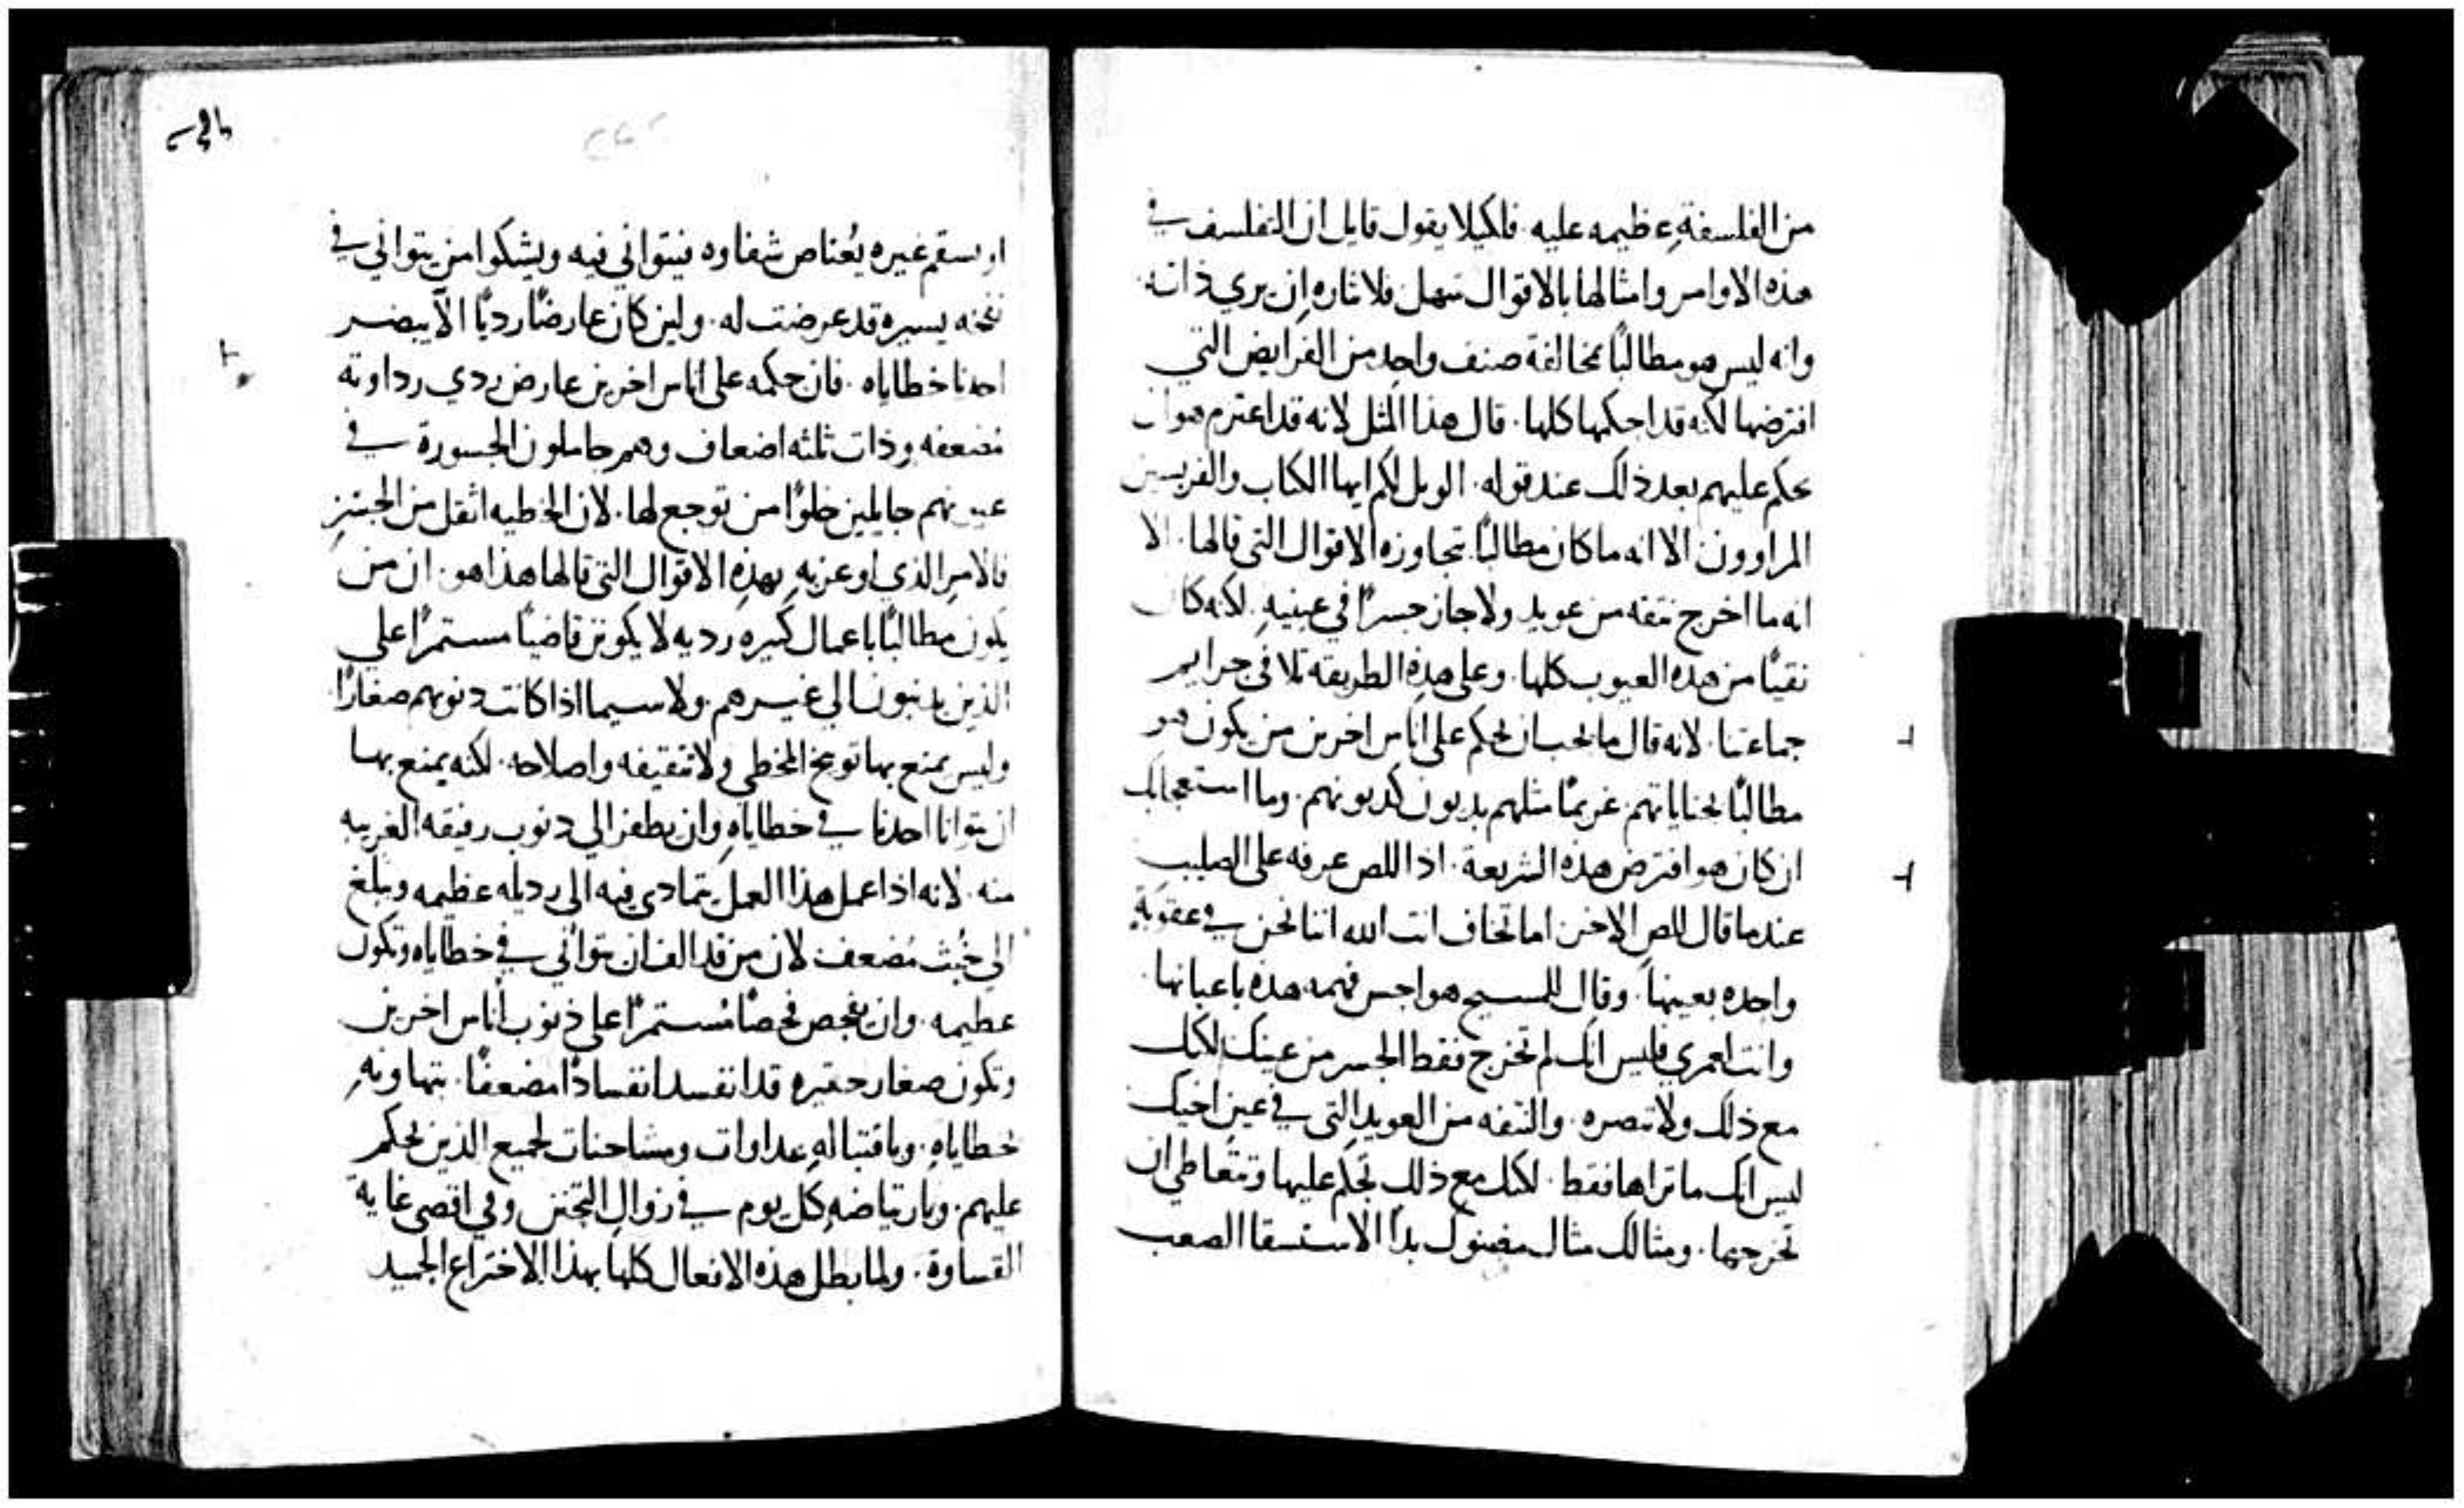 من الفلسفة عظيمه عليه. فلكيلا يقول قايل ان التفلسف في
هذه الاوامر وامثالها بالاقوال سهل فلاثاره ان يري ذاته
وانه ليس هو مطالبًا بمخالفة صنف واحد من الفرايض التي
افترضها لكنه قد احكمها كلها. قال هذا المثل لانه قد اعتزم هو ان
يحكم عليهم بعد ذلك عند قوله. الويل لكم ايها الكتاب والفريسين
المراوون الا انه ما كان مطالبًا بتجاوزه الاقوال التي قالها. الا
انه ما اخرج نتفه من عويد ولا جاز جسرًا في عينيه. لكنه كان
نقيًا من هذه العيوب كلها. وعلى هذه الطريقه تلافى جرايم
جماعتنا. لانه قال ما يجب ان يحكم على اناس اخرين من يكون هو
مطالبًا بجناياتهم. غريمًا مثلهم بديون كديونهم. وما استعجابك
ان كان هو افترض هذه الشريعة. اذ اللص عرفه على الصليب
عندما قال للص الاخر. اما تخاف انت الله اننا نحن في عقوبة
واحده بعينها. وقال للمسيح هواجس فهمه هذه باعيانها.
وانت لعمري فليس انك لم تخرج فقط الجسر من عينك لكنك
مع ذلك ولا تبصره. والنتفه من العويد التي في عين اخيك
ليس انك ما تراها فقط. لكنك مع ذلك تحكم عليها وتتعاطى ان
تخرجها. ومثالك مثال مضنوك بدا الاستسقا الصعب
او بسقم غيره يُعتاص شفاوه فيتواني فيه ويشكوا من يتواني في
نفخه يسيره قد عرضت له. ولين كان عارضًا رديًا الا يبصر
احدنا خطاياه. فان حكمه على اناس اخرين عارض ردي رداوته
مُضعفه وذات ثلثه اضعاف وهم حاملون الجسورة في
عيونهم جايلين خلوًا من توجع لها. لان الخطيه اثقل من الجسر
فالامر الذي اوعز به بهذه الاقوال التي قالها هذا هو. ان من
يكون مطالبًا باعمال كثيره رديه لا يكونن قاضيًا مستمرًا على
الذين يذنبون الي غيرهم. ولا سيما اذا كانت ذنوبهم صغارًا
وليس يمنع بها توبيخ المخطي ولا تثقيفه واصلاحه. لكنه يمنع بها
ان يتوانا احدنا في خطاياه وان يطفر الي ذنوب رفيقه الغريبه
منه. لانه اذا عمل هذا العمل يتمادى فيه الى رذيله عظيمه ويبلغ
الي خُبث مُضعف لان من قد الف ان يتواني في خطاياه وتكون
عظيمه. وان يفحص فحصًا مُستمرًا على ذنوب أناس اخرين
وتكون صغار حقيره قد انفسد انفسادًا مضعفًا. بتهاونه
بخطاياه. وباقتباله عداوات ومشاحنات لجميع الذين يحكم
عليهم. وبارتياضه كل يوم في زوال التحنن وفي اقصى غاية
القساوة. ولما بطل هذه الافعال كلها بهذا الاختراع الجميد